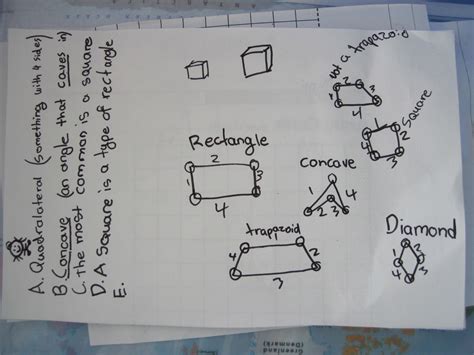 A. Quadrolateral (something with 4 sides)
B. Concave (an angle that caves in)
C. the most common is a square
D. A square is a type of rectangle
E.
not a trapazoid
1 2 3 4
Square
1 2 3 4
Rectangle
1 2 3 4
concave
1 2 3 4
trapazoid
4 2
3
Diamond
1 2
4 3
Greenland
(Denmark)